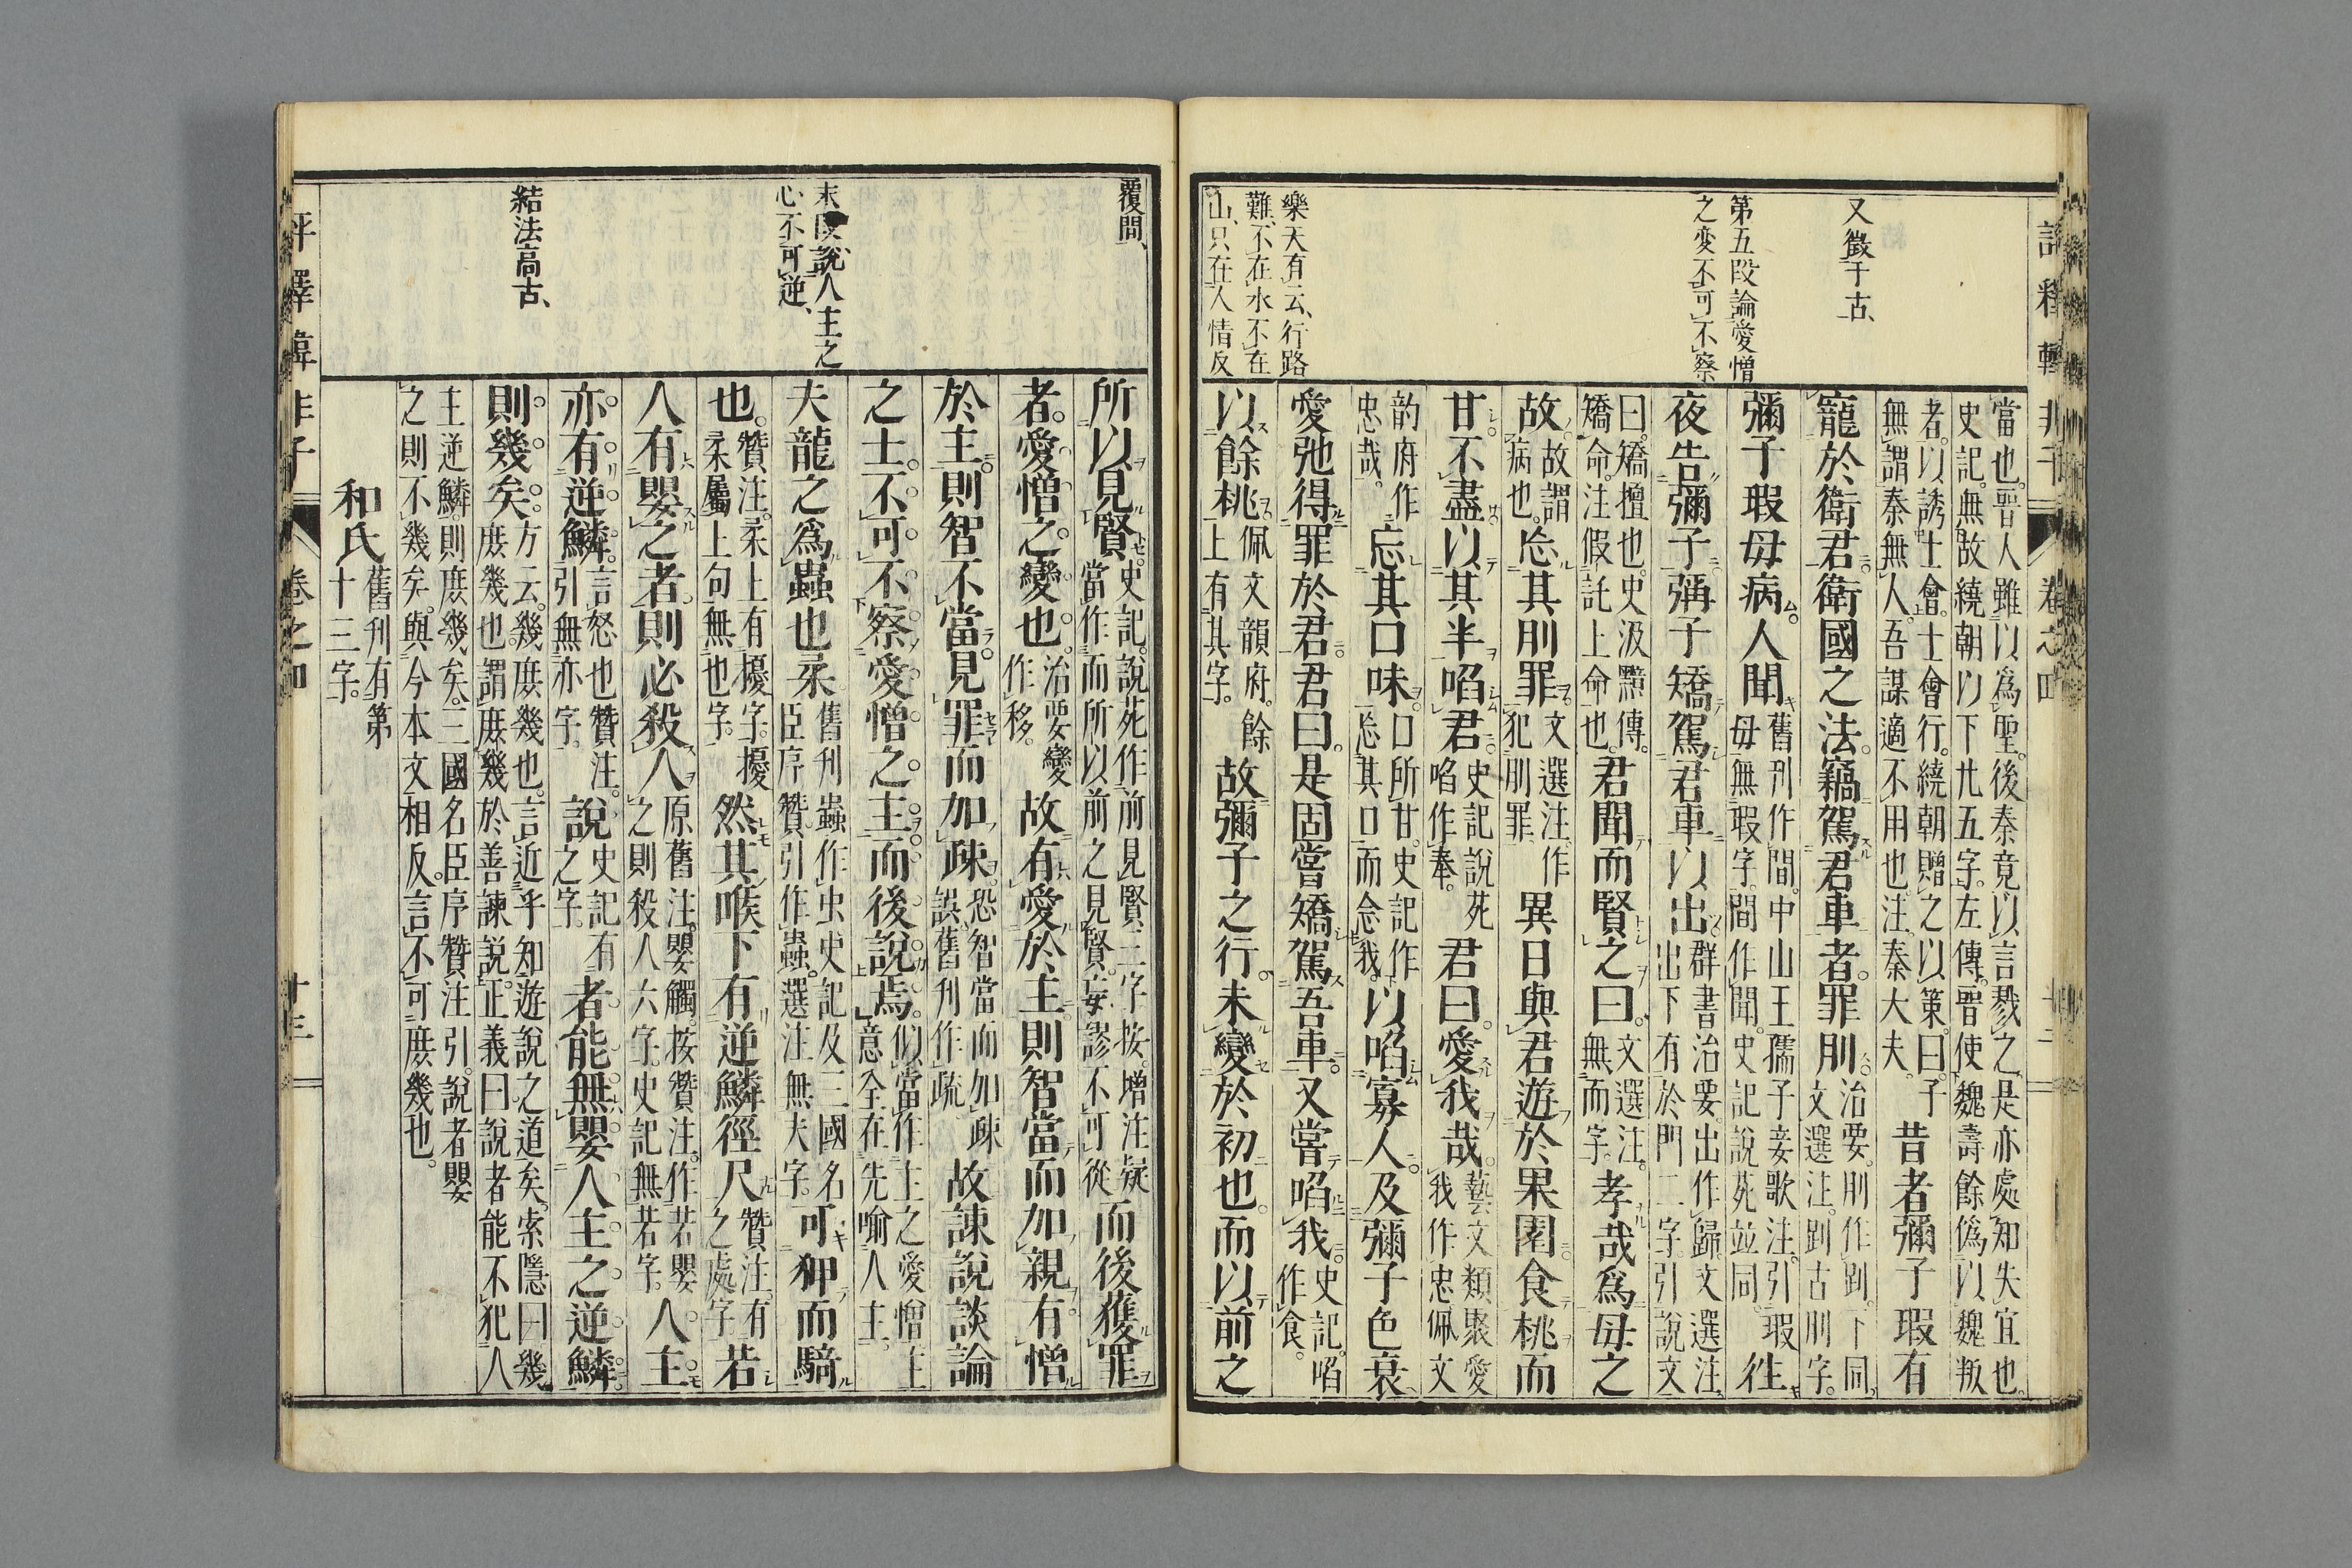 卷之四
又徵于古、
第五段論愛憎
之變不可不察
樂天有云、行路
難、不在水不在
山、只在人情反
當也。晉人雖以為聖。後秦竟以言戮之。是亦處知失宜也。
史記。無故繞朝以下廿五字。左傳。晉使魏壽餘偽以魏叛
者。以誘士會。士會行。繞朝贈之以策。曰。子
無謂秦無人。吾謀適不用也。注。秦大夫。昔者彌子瑕有
寵於衛君衛國之法。竊駕君車者。罪刖治要。刖作趴。下同。文選注。趴古刖字。
彌子瑕母病。人聞舊刊作間。中山王孺子妾歌注。引瑕母無瑕字。間作聞。史記說苑並同。往
夜告彌子彌子矯駕君車以出群書治要。出作歸文選注出下有於門二字引說文
曰。矯擅也。史汲黯傳。矯命。注假託上命也。君聞而賢之曰。文選注。無而字。孝哉為母之
故故謂病也。忘其刖罪。文選注作犯刖罪異日與君遊於果園食桃而
甘不盡以其半啗君史記說苑啗作奉。君曰。愛我哉。藝文類聚愛我作忠佩文
韵府作忠哉。忘其口味。口所甘。史記作忘其口而念我。以啗寡人及彌子色衰
愛弛得罪於君君曰。是固嘗矯駕吾車。又嘗啗我。史記。啗作食。
以餘桃佩文韻府。餘上有其字。故彌子之行。未變於初也。而以前之
覆間、
末段說人主之
心不可逆、
結法高古、
所以見賢。史記。說苑作前見賢三字按增注疑當作而所以前之見賢。妄謬不可從而後獲罪
者。愛憎之變也。治要變作移。故有愛於主則智當而加親有憎
於主則智不當見罪而加疎恐智當而加疎誤舊刊作疏故諫說談論
之士。不可不察愛憎之主而後說焉。似當作主之愛憎主意全在先喻人主。
夫龍之為蟲也柔舊刊蟲作虫史記及三國名臣序贊引作蟲。選注無夫字。可狎而騎
也。贊注。柔上有擾字。擾柔屬上句無也字。然其喉下有逆鱗徑尺贊注。有之處字若
人有嬰之者則必殺人原舊注。嬰觸。按贊注。作若嬰之則殺人六字。史記無若字。人主
亦有逆鱗。言怒也贊注。引無亦字。說史記有之字。者能無嬰人主之逆鱗
則幾矣。方云。幾庶幾也。言近乎知遊說之道矣。索隱曰幾庶幾也。謂庶幾於善諫說。正義曰說者能不犯人
主逆鱗。則庶幾矣。三國名臣序贊注引。說者嬰
之則不幾矣。與今本文相反。言不可庶幾也。
和氏舊刊有第十三字。
評釋韓非子 卷之四 十三